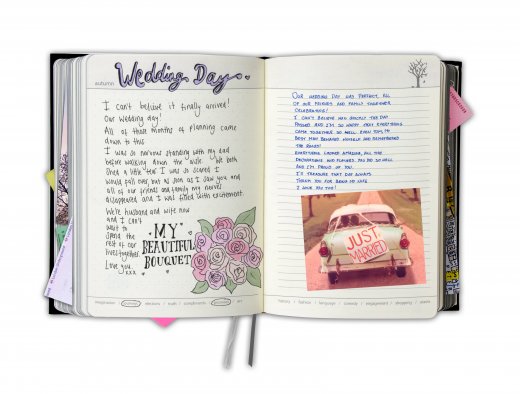 Wedding Day
autumn
I can't believe it finally arrived!
Our wedding day!
All of those months of planning came
down to this.
I was so nervous standing with my dad
before walking down the aisle. We both
shed a little tear! I was so scared I
would fall over, but as soon as I saw you and
all of our friends and family my nerves
disappeared and I was filled with excitement.
We're husband and wife now
and I can't
wait to
spend the
rest of our
lives together.
Love you
xxx
MY
BEAUTIFUL
BOUQUET
inspiration / / exercises / music / compliments / / art
OUR WEDDING DAY WAS PERFECT, ALL
OF OUR FRIENDS AND FAMILY TOGETHER
CELEBRATING!
I CAN'T BELIEVE HOW QUICKLY THE DAY
PASSED AND I'M SO HAPPY THAT EVERYTHING
CAME TOGETHER SO WELL. EVEN TOM, MY
BEST MAN BEHAVED HIMSELF AND REMEMBERED
THE RINGS!
EVERYTHING LOOKED AMAZING, ALL THE
DECORATIONS AND FLOWERS. YOU DID SO WELL
AND I'M PROUD OF YOU.
I'LL TREASURE THAT DAY ALWAYS.
THANK YOU FOR BEING MY WIFE
I LOVE YOU TOO!
JUST
MARRIED
history / fashion / language / comedy / engagement / shopping / plants